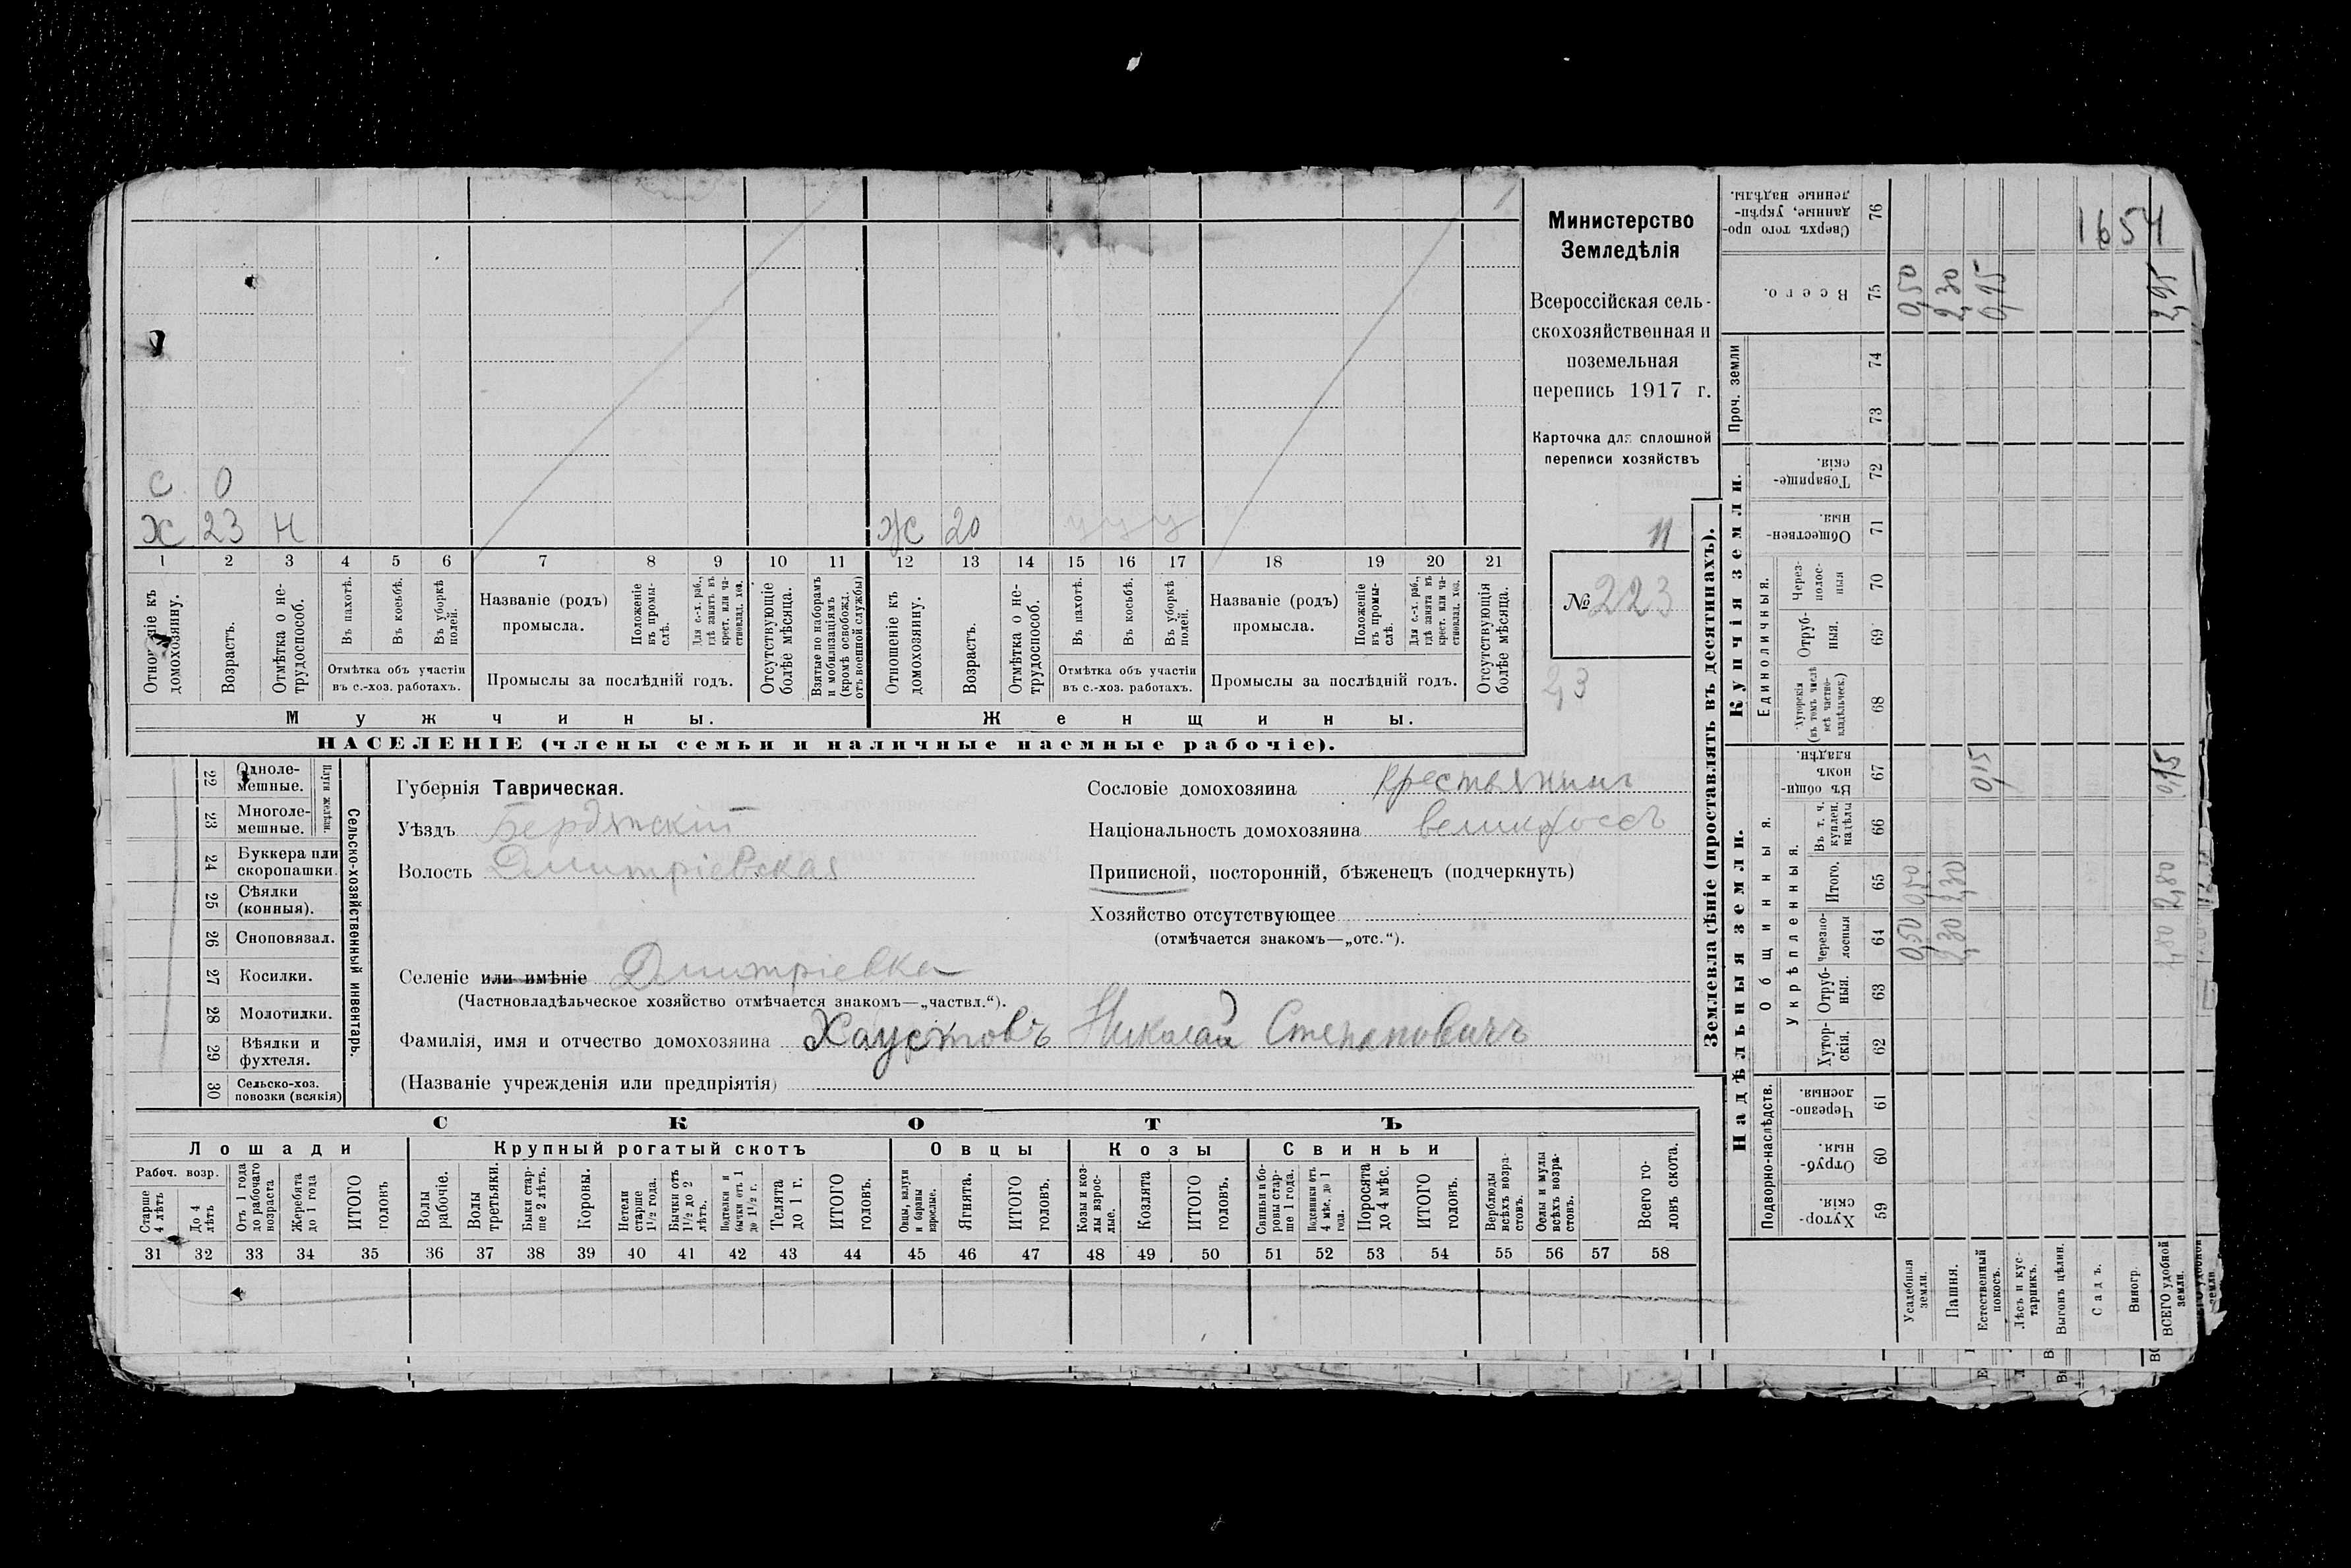 1654
Министерство
Земледѣлія
Всероссійская сель-
скохозяйственная и
поземельная
перепись 1917 г.
Карточка для сплошной
переписи хозяйствъ
№ 223
23
С 0
Х 23 Н Ж 20 У У У
1 2 3 4 5 6 7 8 9 10 11 12 13 14 15 16 17 18 19 20 21
домохозяину.
Возрастъ.
Отмѣтка о не-
трудоспособ.
Въ пахотѣ.
Въ косьбѣ.
Въ уборкѣ
полей.
Отмѣтка объ участіи
въ с.-хоз. работахъ.
Названіе (родъ)
промысла.
Положеніе
въ промы-
слѣ.
Для с.-х. раб.,
гдѣ занятъ въ
крест. или ча-
стновлад. хоз.
Промыслы за послѣдній годъ.
Отсутствующіе
болѣе мѣсяца.
Взятые по наборамъ
и мобилизаціямъ
(кромѣ освобожд.
отъ военной службы)
Отношеніе къ
домохозяину.
Возрастъ.
Отмѣтка о не-
трудоспособ.
Въ пахотѣ.
Въ косьбѣ.
Въ уборкѣ
полей.
Отмѣтка объ участіи
въ с.-хоз. работахъ.
Названіе (родъ)
промысла.
Положеніе
въ промы-
слѣ.
Для с.-х. раб.,
гдѣ занята въ
крест. или ча-
стновлад. хоз.
Промыслы за послѣдній годъ.
Отсутствующія
болѣе мѣсяца.
Мужчины.
Женщины.
НАСЕЛЕНІЕ (члены семьи и наличные наемные рабочіе).
22 Одноле-
мешные.
23 Многоле-
мешные.
Плуги желѣзн.
24 Буккера или
скоропашки.
25 Сѣялки
(конныя).
26 Сноповязал.
27 Косилки.
28 Молотилки.
29 Вѣялки и
фухтеля.
30 Сельско-хоз.
повозки (всякія)
Сельско-хозяйственный инвентарь.
Губернія Таврическая.
Уѣздъ Бердянскій
Волость Дмитріевская
Селеніе или имѣніе Дмитріевка
(Частновладѣльческое хозяйство отмѣчается знакомъ—„частвл.“).
Фамилія, имя и отчество домохозяина Хаустовъ Николай Степановичъ
(Названіе учрежденія или предпріятія)
Сословіе домохозяина крестьянинъ
Національность домохозяина великороссъ
Приписной, посторонній, бѣженецъ (подчеркнуть)
Хозяйство отсутствующее
(отмѣчается знакомъ—„отс.“).
СКОТЪ
Лошади
Крупный рогатый скотъ
Овцы
Козы
Свиньи
Рабоч. возр.
Старше
4 лѣтъ
До 4
лѣтъ
Отъ 1 года
до рабочаго
возраста
Жеребята
до 1 года
ИТОГО
головъ
Волы
рабочіе.
Волы
третьяки.
Быки стар-
ше 2 лѣтъ.
Коровы.
Нетели
старше
1½ года.
Бычки отъ
1½ до 2
лѣтъ.
Подтелки и
бычки отъ 1
до 1½ г.
Телята
до 1 г.
ИТОГО
головъ.
Овцы, валухи
и бараны
взрослые.
Ягнята.
ИТОГО
головъ.
Козы и коз-
лы взрос-
лые.
Козлята
ИТОГО
головъ.
Свиньи и бо-
ровы стар-
ше 1 года.
Подсвинки отъ
4 мѣс. до 1
года.
Поросята
до 4 мѣс.
ИТОГО
головъ.
Верблюды
всѣхъ возра-
стовъ.
Ослы и мулы
всѣхъ возра-
стовъ.
Всего го-
ловъ скота.
31 32 33 34 35 36 37 38 39 40 41 42 43 44 45 46 47 48 49 50 51 52 53 54 55 56 57 58
Землевладѣніе (проставлять въ десятинахъ).
Надѣльныя земли.
Купчія земли.
Проч. земли
Подворно-наслѣдств.
Общинныя.
Укрѣпленныя.
Единоличныя.
Хутор-
скія. 59
Отруб-
ныя. 60
Черезпо-
лосныя 61
Хутор-
скія. 62
Отруб-
ныя. 63
Черезпо-
лосныя 64
Итого. 65
Въ т. ч.
куплен.
надѣлы 66
Въ общин-
номъ
владѣн. 67
Хуторскія
(въ томъ числѣ
всѣ частно-
владѣльческ.) 68
Отруб-
ныя. 69
Через-
полос-
ныя 70
Обществен-
ныя. 71
Товарище-
скія. 72
73
74
Всего. 75
Сверхъ того про-
данные, укрѣп-
ленные надѣлы. 76
Усадебныя
земли. 0,50 0,50 0,50
Пашня. 2,30 2,30 2,30
Естественный
покосъ. 0,15 0,15
Лѣсъ и кус-
тарникъ.
Выгонъ цѣлин.
Садъ.
Виногр.
ВСЕГО удобной
земли. 2,80 2,80 0,15 2,95